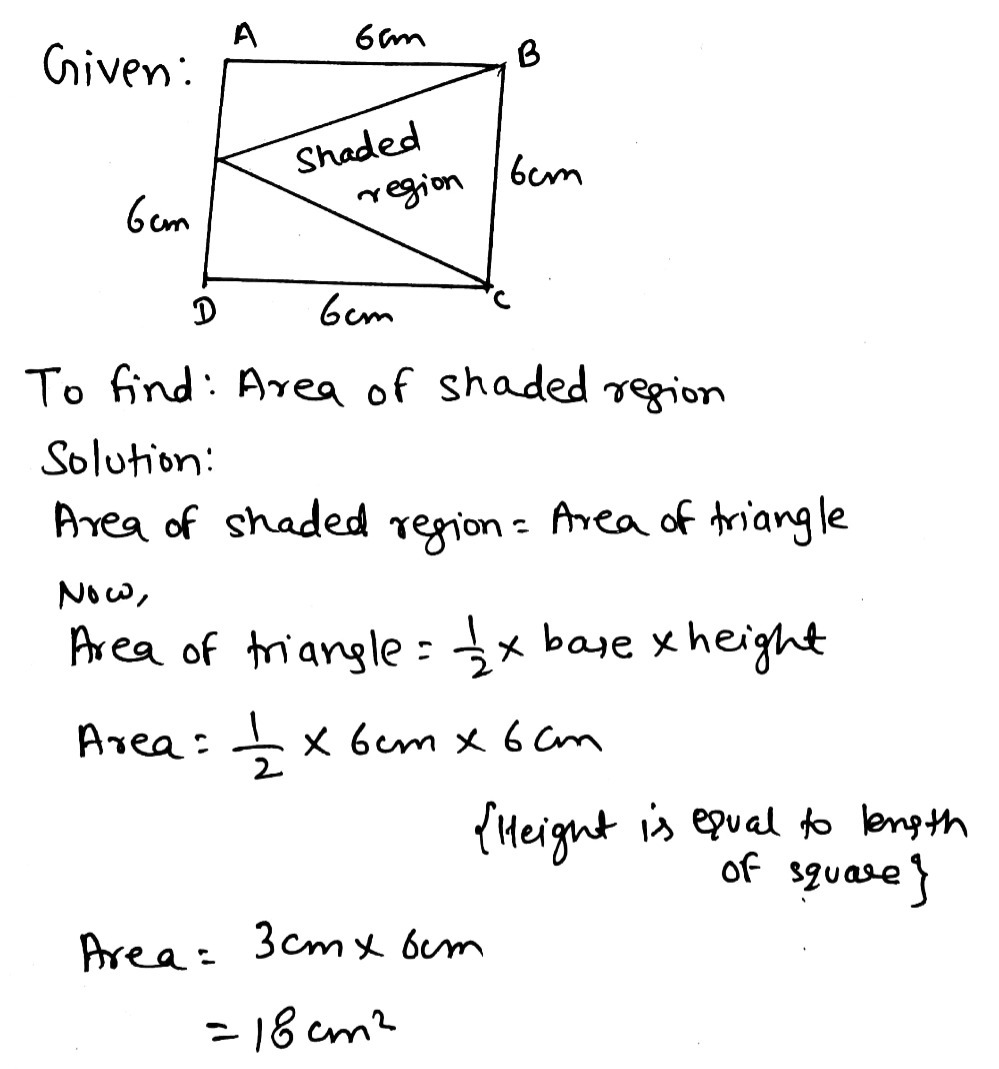 Given:
A 6cm B
Shaded
region
6cm
6cm
D 6cm C
To find: Area of shaded region
Solution:
Area of shaded region = Area of triangle
Now,
Area of triangle = 1/2 x base x height
Area = 1/2 x 6cm x 6cm
{Height is equal to length
of square}
Area = 3cm x 6cm
= 18 cm²